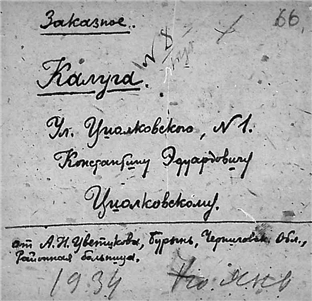 Заказное.
66.
Калуга.
Ул. Циолковского, N1.
Константину Эдуардовичу
Циолковскому.
от А.Н. Цветкова, Бурынь, Черниговск. Обл.,
Районная больница.
1934